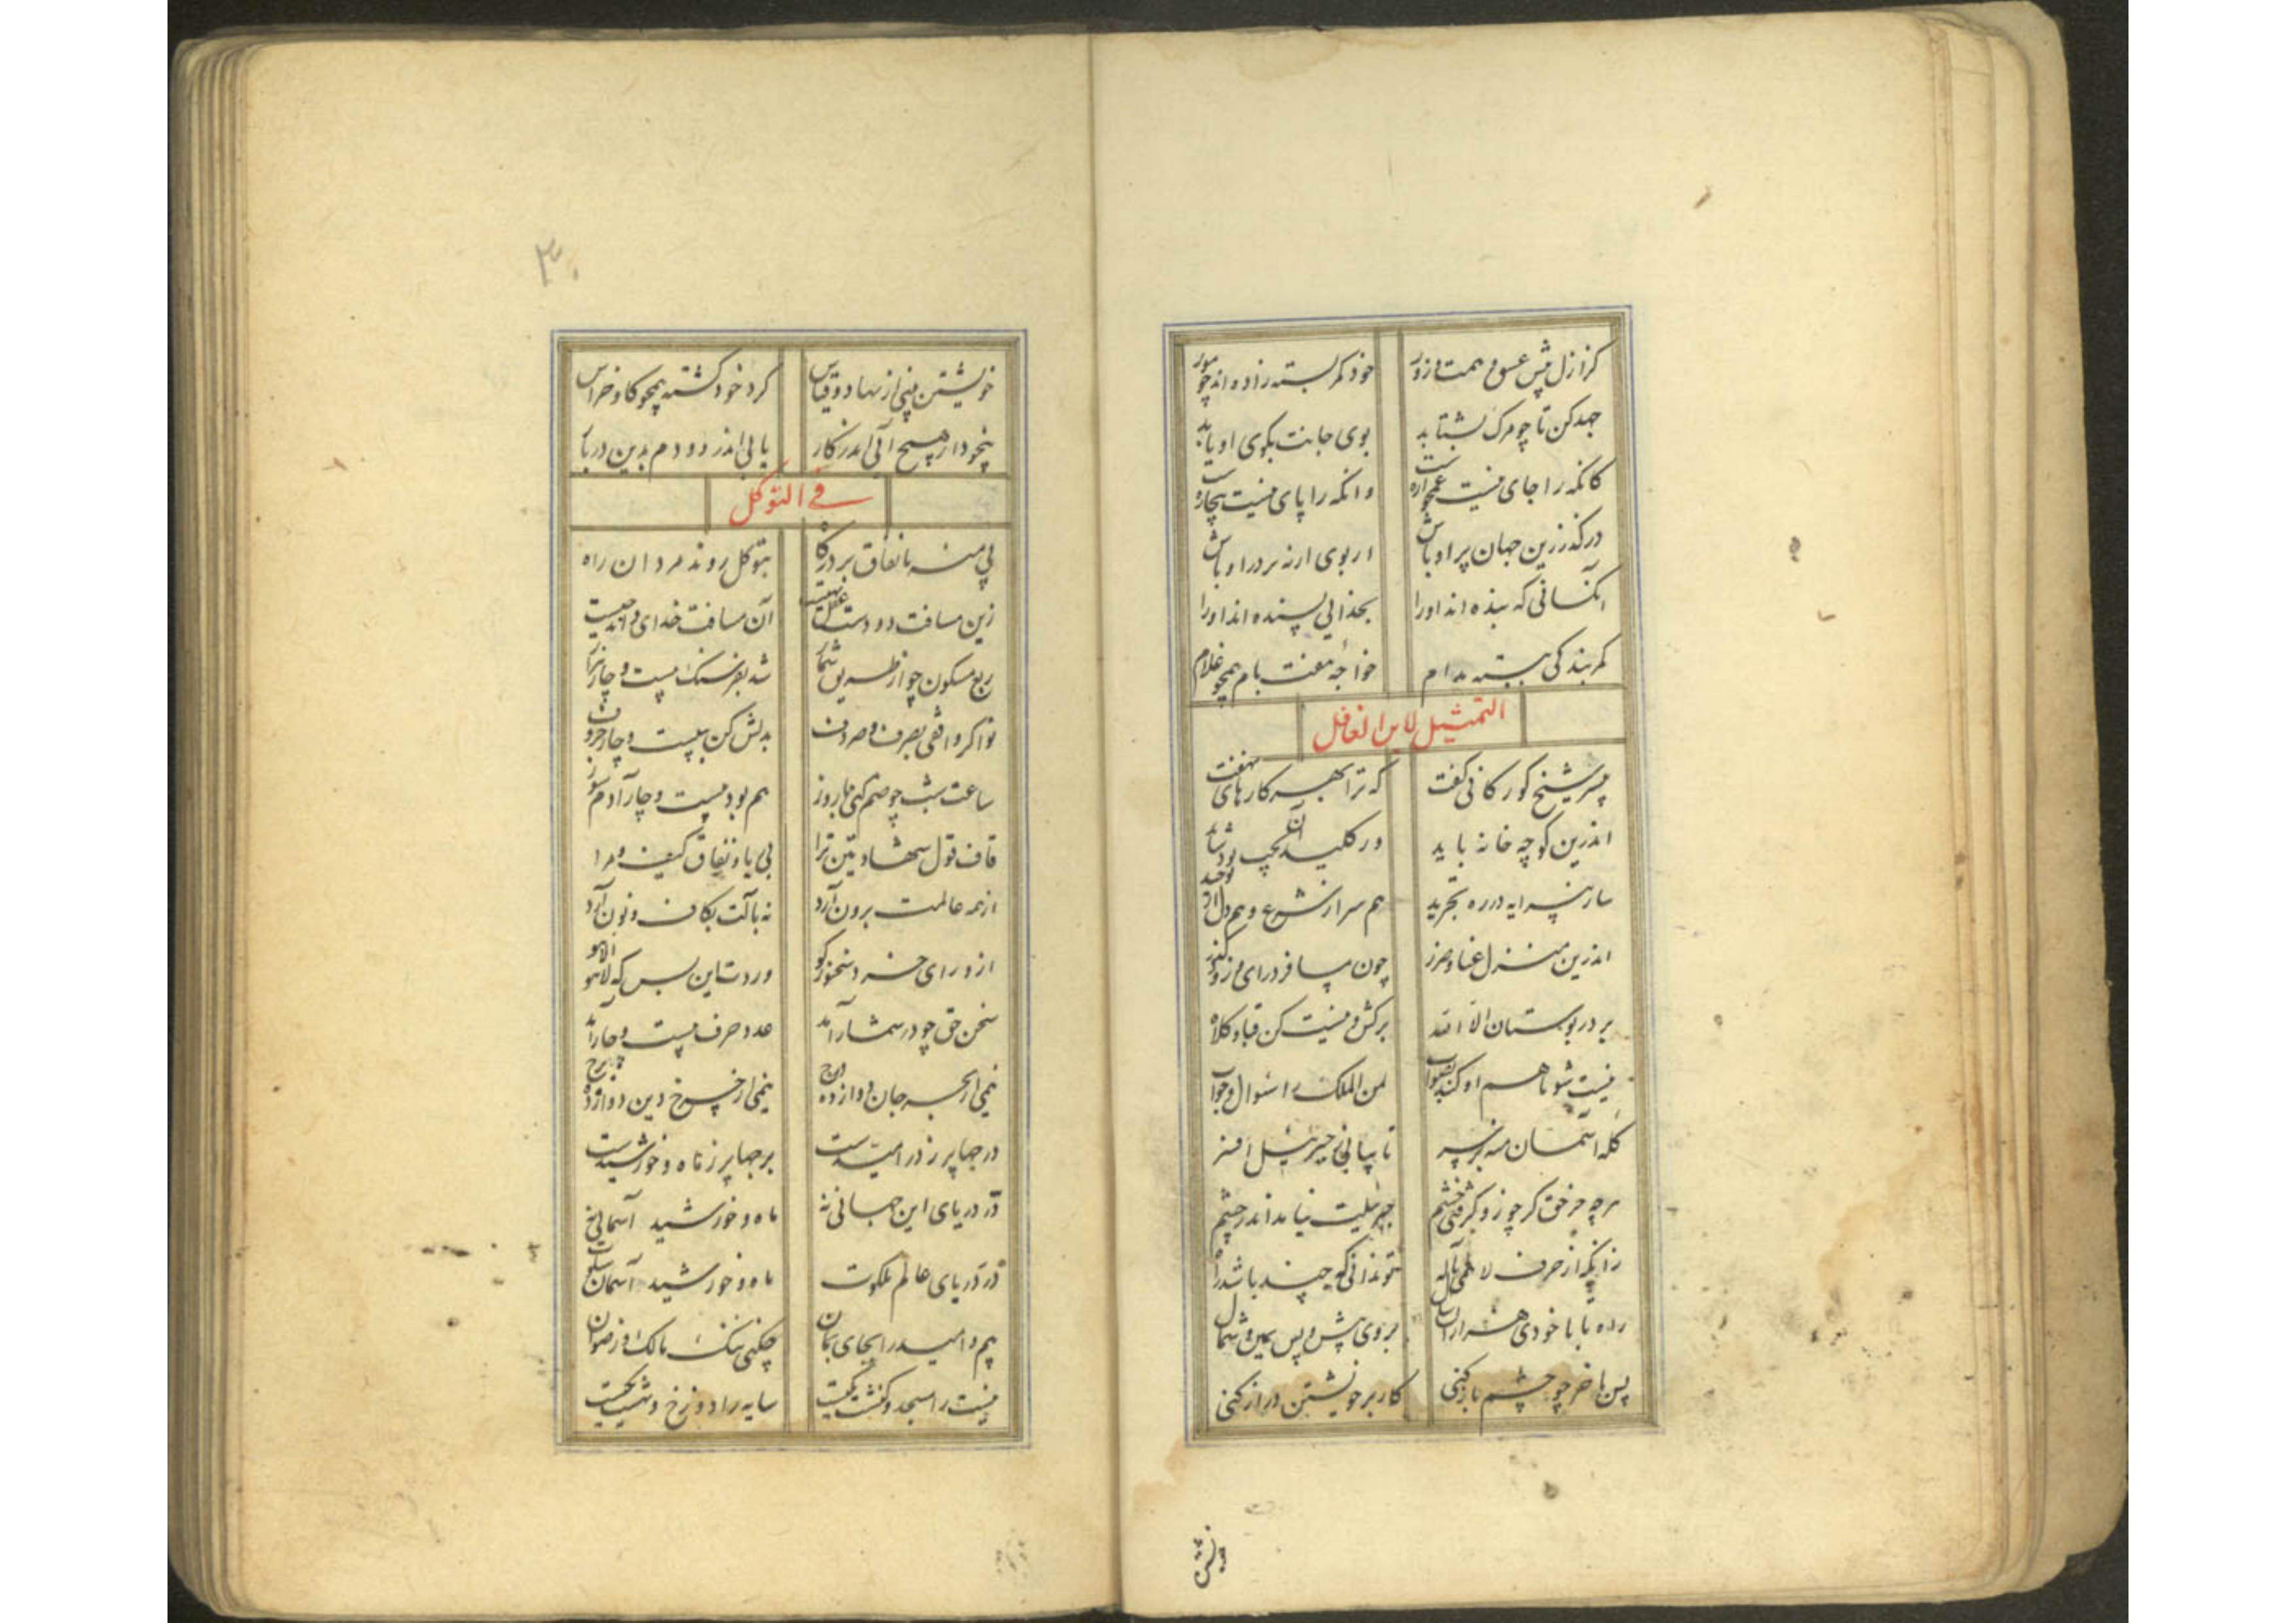 کز ازل پیش عشق و همت و زور خود کمر بسته زاده اند چو مور
جهد کن تا چو مرگ بشتابد بوی جانت بکوی او یابد
کانکه را جای نیست غمخوارست وانکه را پای نیست بیچارست
درگذر زین جهان پر اوباش
آنکسانی که بنده اند اورا بخدایی پسنده اند اورا
کمر بندگی ببسته مدام خواجهٔ هفت بام همچو غلام
التمثیل لابن الغافل
پسر شیخ گورکانی گفت که ترا بهر کارهای نهفت
اندرین کوچه خانه باید
ساز پیرایه در ره تجرید هم سر از شرع و هم دل از توحید
اندرین منزل عنا و ضرر چون مسافر درای و زود گذر
بر در بوستان الا الله برکش و نیست کن قبا و کلاه
نیست شو تا هم او کند بصواب لمن الملک را سؤال و جواب
جبرئیلت نیاید اندر چشم
تو ندانی که چند باشد راه
راه تا با خودی هزاران سال بروی پیش و پس یمین و شمال
پس بآخر چو چشم باز کنی کار بر خویشتن دراز کنی
خویشتن
۳۰
خویشتن بینی از نهاد و قیاس گرد خود گشته همچو گاو خراس
بیخود ار هیچ آئی اندر کار یابی اندر دو دم بدین در بار
فی التوکل
پی منه با نفاق بر درگاه بتوکل روند مردان راه
زین مسافت دو دست عقل تهیست آن مسافت خدای داند چیست
ربع مسکون چو از طریق شمار شد بفرسنگ بیست و چار هزار
تو اگر واقفی بصرف و صروف بدلش کن به بیست و چار حروف
ساعت شب چو ضم کنی با روز هم بود بیست و چار آدم سوز
قاف قول شهادتین ترا بی ریا و نفاق کیف و مرا
از همه عالمت برون آرد نه بآلت بکاف و نون آرد
از ورای خرد سخن برگو وردت این بس که لا هو الا هو
سخن حق چو در شمار آمد عدد حرف بیست و چار آمد
نیمی از بحر جان دوازده درج نیمی از چرخ دین دوازده برج
درجها پر ز در امیدست برجها پر ز ماه و خورشیدست
در دریای این جهانی نه ماه و خورشید آسمانی نه
در دریای عالم ملکوت ماه و خورشید آسمان سکوت
بیم و امید را بجای بمان چکنی ننگ مالک و رضوان
نیست را مسجد و کنشت یکیست سایه را دوزخ و بهشت یکیست